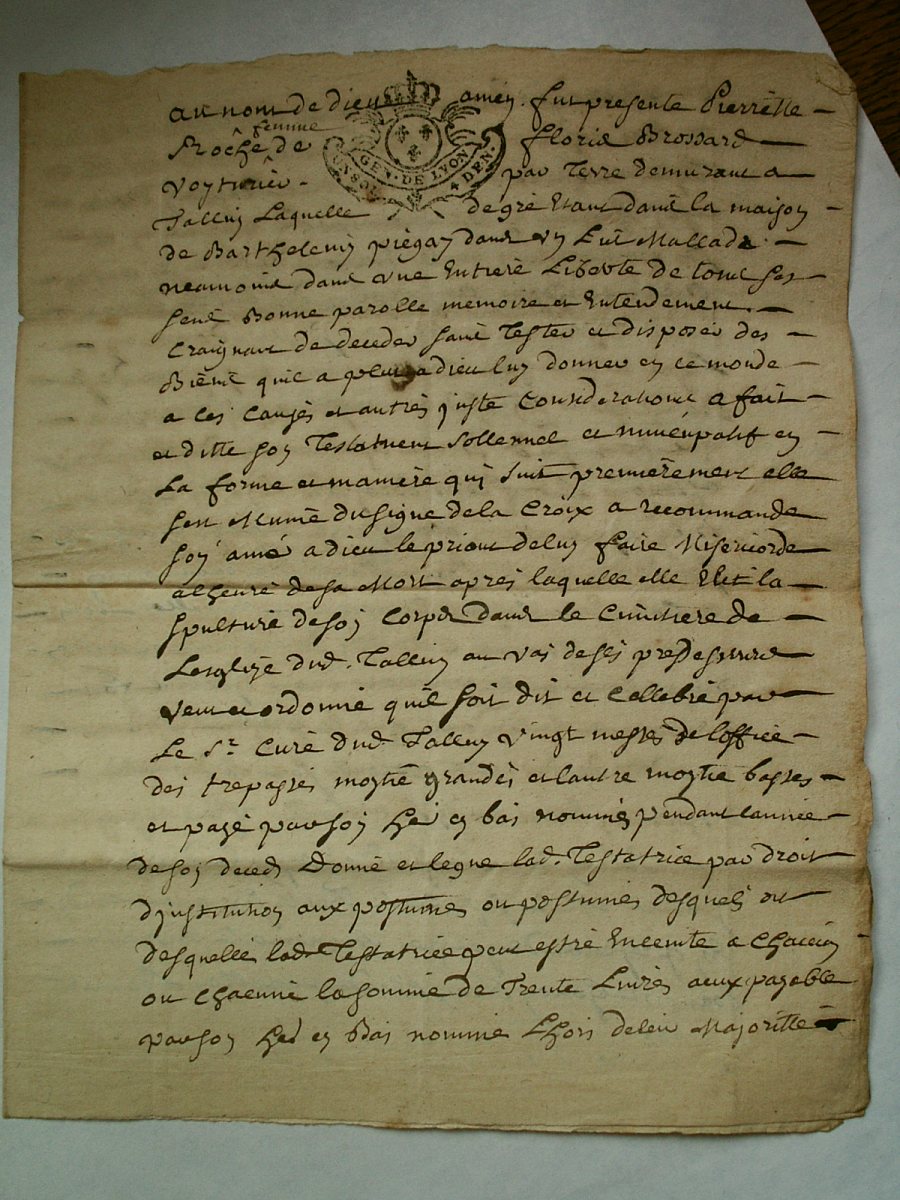 au nom de dieu amen. fut presente Pierrette
Roche femme de florid Brossard
GEN. DE LYON
4 DEN.
voyturier par Terre demeurant a
Talluy Laquelle de gré Etant dans la maison
de Barthelemy piegay dans un Lit Mallade
neamoins dans une Entiere Liberte de tous ses
sens Bonne parolle memoire et Entendement
Craignant de deceder sans Tester et disposer des
Biens quil a pleut a dieu luy donner en ce monde
a ces Causes et autres juste Considerations a fait
et ditte son Testament sollennel et nuncupatif en
La forme et maniere qui suit premierement elle
sest Munie du signe de la Croix a recommande
son ame a dieu le priant de luy faire Misericorde
a lheure de sa Mort apres laquelle elle Elit la
spulture de son Corps dans le Cimitiere de
Lesglize dud. Talluy au vas de ses predesseurs
veut et ordonne quil soit dit et Cellebré par
Le Sr. Curé dud. Talluy vingt messes de loffice
des trepassés moytié grandes et lautre moytié basses
et payé par son her en bas nommé pendant lannée
de son deces Donne et legue lad. Testatrice par droit
dinstitution aux postumes ou postumes desquels ou
desquelle lad. Testatrice peut estre Enceinte a Chacun
ou Chacune la somme de Trente Livres a eux payable
par son her en Bas nommé Lhors de leur Majoritte